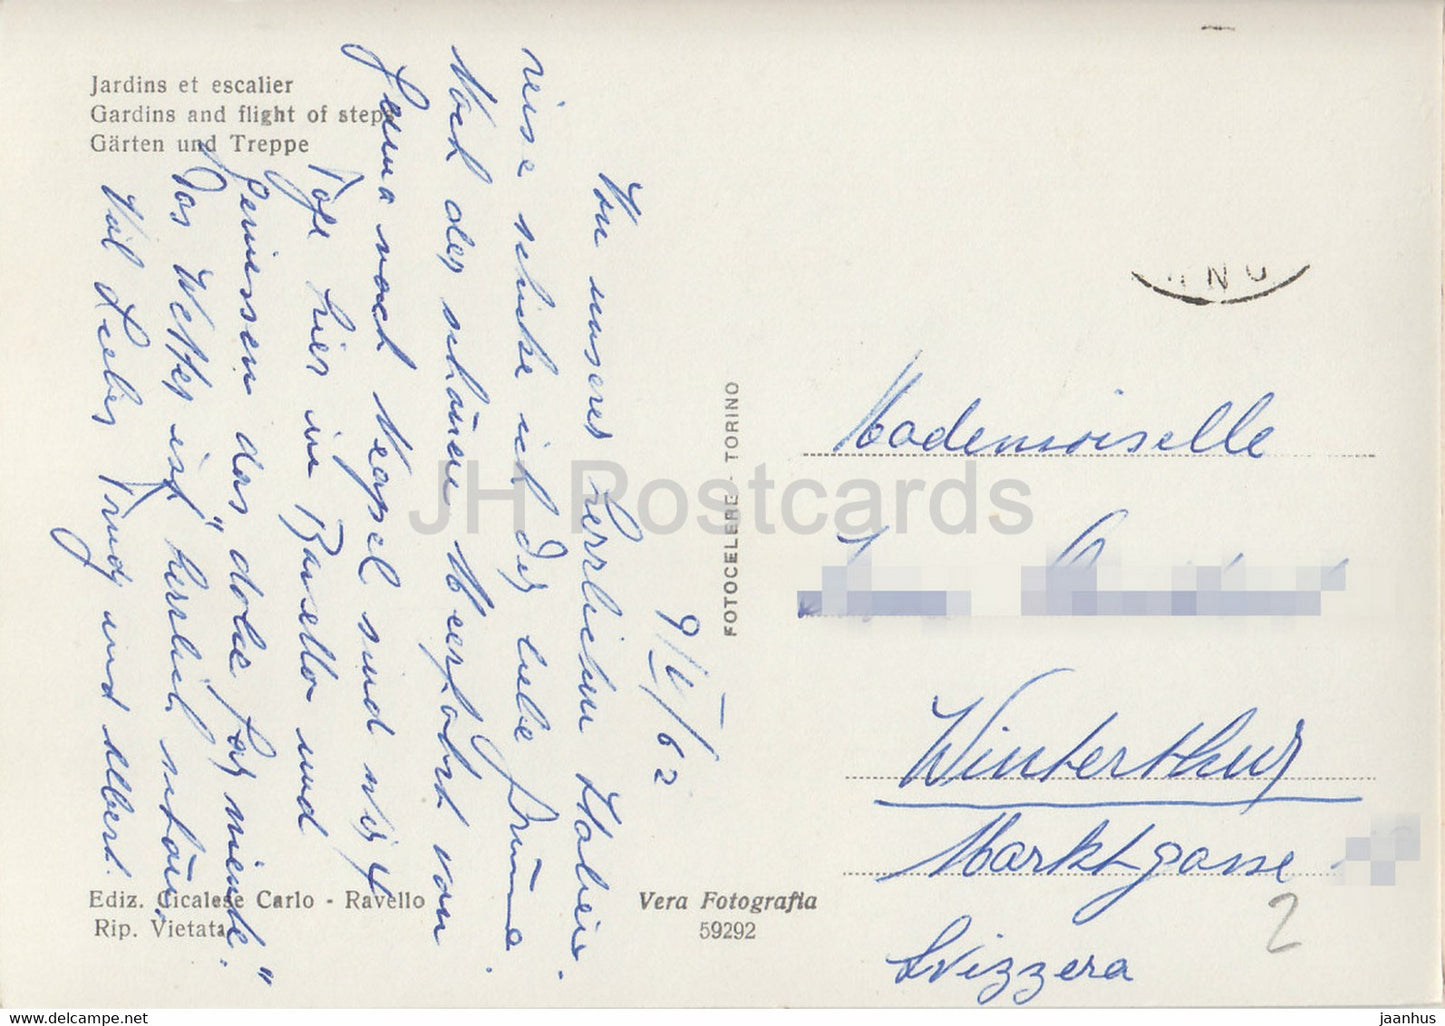 Jardins et escalier
Gardins and flight of steps
Gärten und Treppe
9/V/62
Von unserer herrlichen Italien
reise schike ich Dir liebe Grüsse.
Nach der schönen Meerfahrt von
Genua nach Neapel sind wir 4
Tage hier in Ravello und
geniessen das dolce far niente".
Das Wetter ist "herrlich schön,
Viel Liebes Trudy und Albert.
Ediz. Cicalese Carlo - Ravello
Rip. Vietata
Vera Fotografia
59292
FOTOCELERE - TORINO
JH Postcards
Mademoiselle
Winterthur
Marktgasse
Svizzera
2
www.delcampe.net
jaanhus